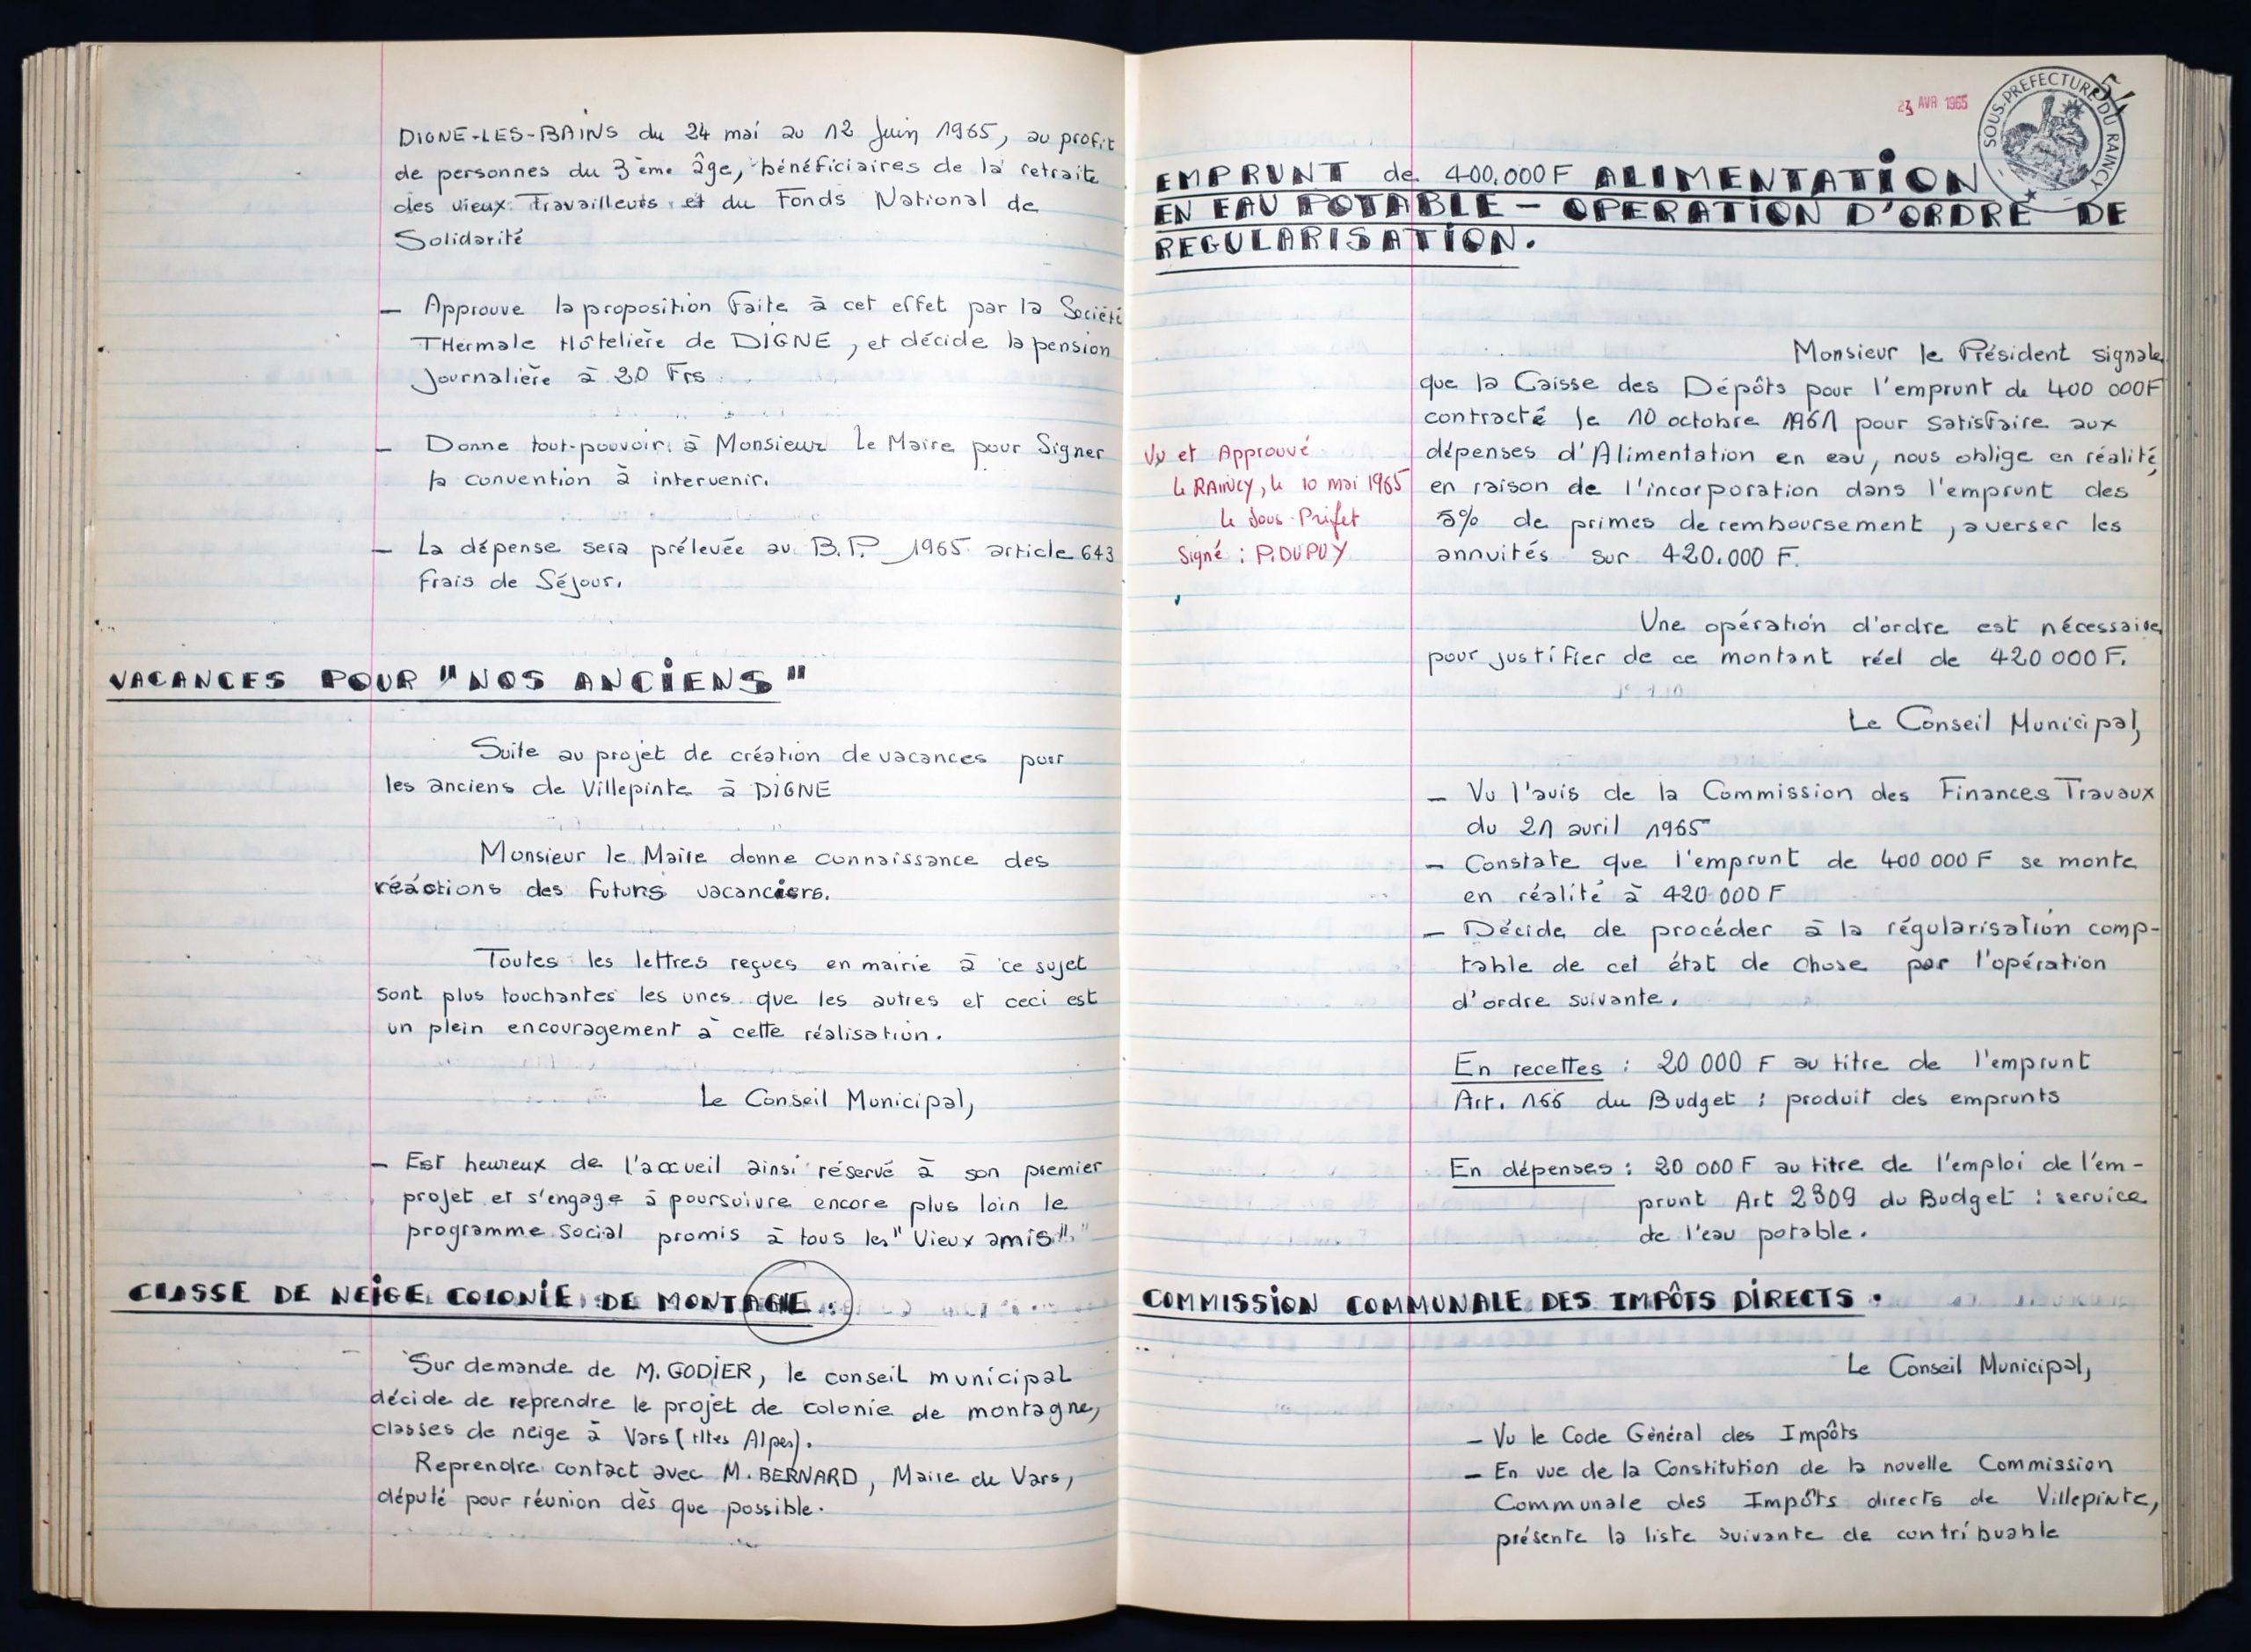 DIGNE-LES-BAINS du 24 mai au 12 Juin 1965, au profit
de personnes du 3ème âge, bénéficiaires de la retraite
des vieux Travailleurs et du Fonds National de
Solidarité
— Approuve la proposition faite à cet effet par la Société
THermale Hôtelière de DIGNE, et décide la pension
Journalière à 20 Frs.
— Donne tout-pouvoir à Monsieur Le Maire pour Signer
la convention à intervenir.
— La dépense sera prélevée au B.P. 1965 article 643
frais de Séjour.
VACANCES POUR "NOS ANCIENS"
Suite au projet de création de vacances pour
les anciens de Villepinte à DIGNE
Monsieur le Maire donne connaissance des
réactions des futurs vacanciers.
Toutes les lettres reçues en mairie à ce sujet
sont plus touchantes les unes que les autres et ceci est
un plein encouragement à cette réalisation.
Le Conseil Municipal,
— Est heureux de l'accueil ainsi réservé à son premier
projet et s'engage à poursuivre encore plus loin le
programme Social promis à tous les "Vieux amis".
CLASSE DE NEIGE COLONIE DE MONTAGNE.
Sur demande de M. GODIER, le conseil municipal
décide de reprendre le projet de colonie de montagne,
classes de neige à Vars (Htes Alpes).
Reprendre contact avec M. BERNARD, Maire de Vars,
député pour réunion dès que possible.
23 AVR 1965
SOUS-PREFECTURE DU RAINCY
54
EMPRUNT de 400.000 F ALIMENTATION
EN EAU POTABLE — OPERATION D'ORDRE DE
REGULARISATION.
Monsieur le Président signale
que la Caisse des Dépôts pour l'emprunt de 400 000F
contracté le 10 octobre 1961 pour satisfaire aux
dépenses d'Alimentation en eau, nous oblige en réalité,
en raison de l'incorporation dans l'emprunt des
5% de primes de remboursement, à verser les
annuités sur 420.000 F.
Vu et Approuvé
Le RAINCY, le 10 mai 1965
Le Sous-Préfet
Signé : P. DUPUY
Une opération d'ordre est nécessaire
pour justifier de ce montant réel de 420 000 F.
Le Conseil Municipal,
— Vu l'avis de la Commission des Finances Travaux
du 21 avril 1965
— Constate que l'emprunt de 400 000 F se monte
en réalité à 420 000 F
— Décide de procéder à la régularisation comp-
table de cet état de chose par l'opération
d'ordre suivante.
En recettes : 20 000 F au titre de l'emprunt
Art. 166 du Budget : produit des emprunts
En dépenses : 20 000 F au titre de l'emploi de l'em-
prunt Art 2309 du Budget : service
de l'eau potable.
COMMISSION COMMUNALE DES IMPÔTS DIRECTS.
Le Conseil Municipal,
— Vu le Code Général des Impôts
— En vue de la Constitution de la novelle Commission
Communale des Impôts directs de Villepinte,
présente la liste suivante de contribuable